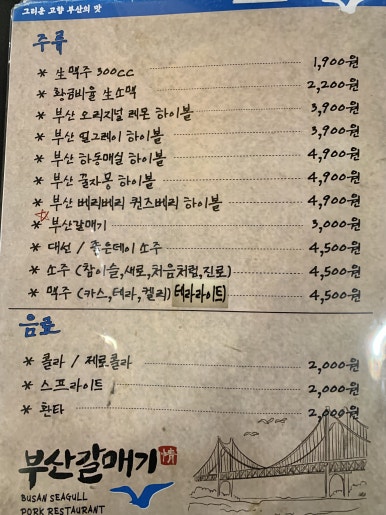 그리운 고향 부산의 맛
주류
* 生맥주 300cc 1,900원
* 황금비율 生소맥 2,200원
* 부산 오리지널 레몬 하이볼 3,900원
* 부산 얼그레이 하이볼 3,900원
* 부산 하동매실 하이볼 4,900원
* 부산 꿀자몽 하이볼 4,900원
* 부산 베리베리 퀸즈베리 하이볼 4,900원
* 부산갈매기 3,000원
* 대선 / 좋은데이 소주 4,500원
* 소주 (참이슬,새로,처음처럼,진로) 4,500원
* 맥주 (카스,테라,켈리) 테라라이트) 4,500원
음료
* 콜라 / 제로콜라 2,000원
* 스프라이트 2,000원
* 환타 2,000원
부산갈매기 情
BUSAN SEAGULL
PORK RESTAURANT